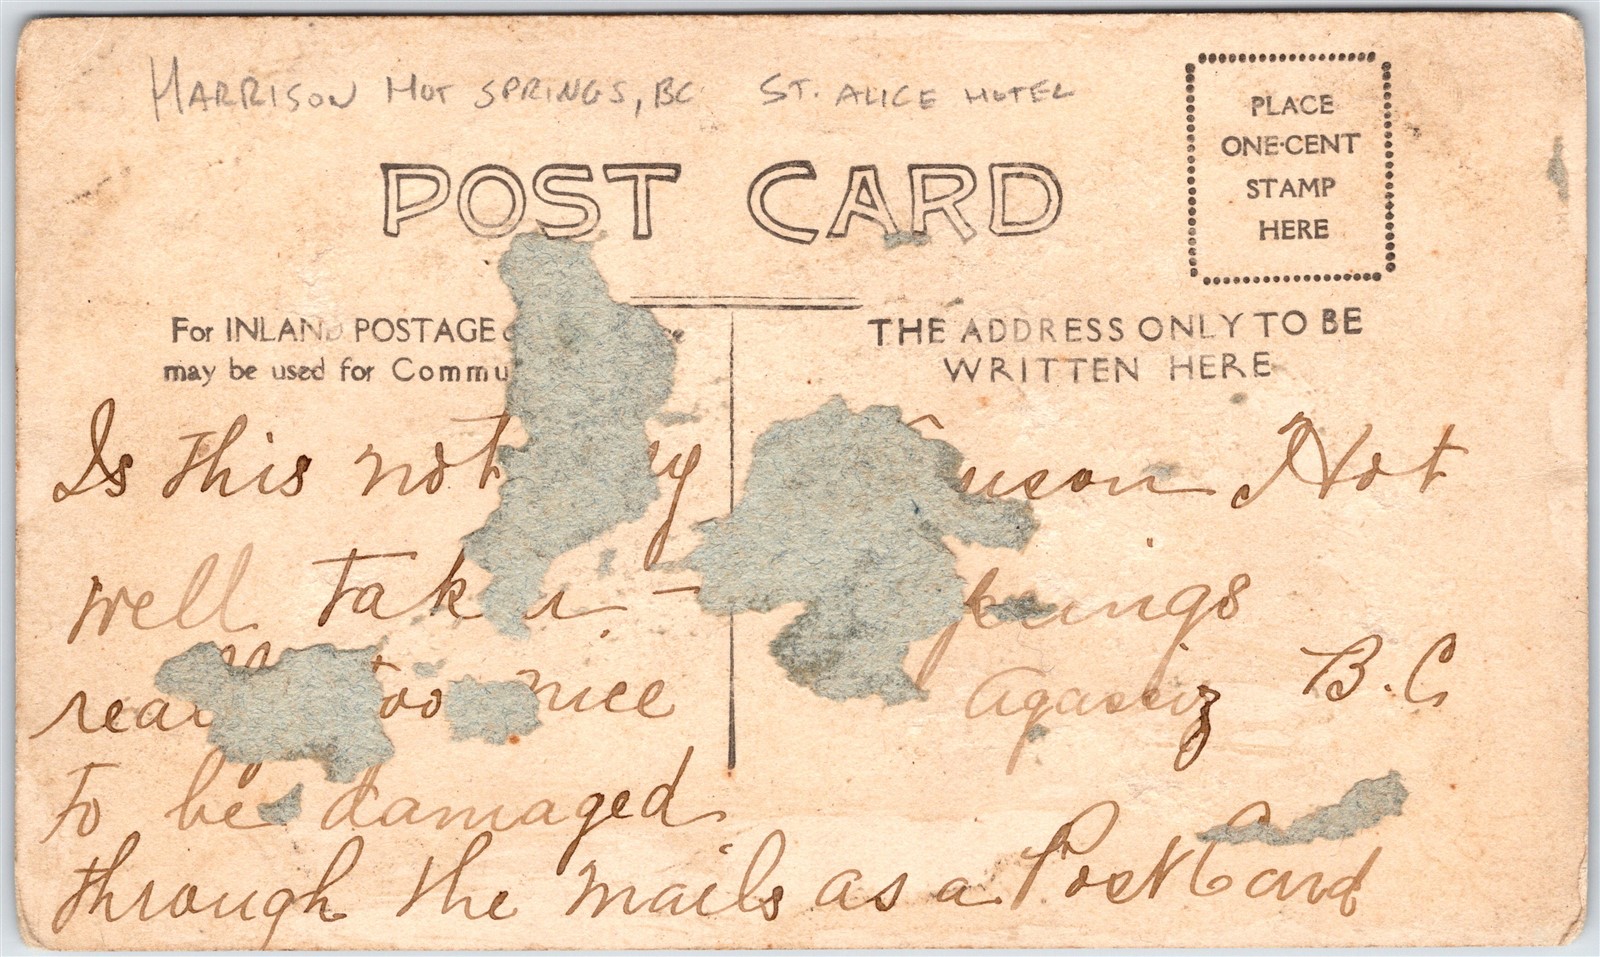 HARRISON HOT SPRINGS, BC ST. ALICE HOTEL
PLACE
ONE-CENT
STAMP
HERE
POST CARD
For INLAND POSTAGE
may be used for Commu
THE ADDRESS ONLY TO BE
WRITTEN HERE
Is this not
well tak n -
real too nice
to be damaged
through the mails as a Post Card
Hot
Springs
Agassiz B.C